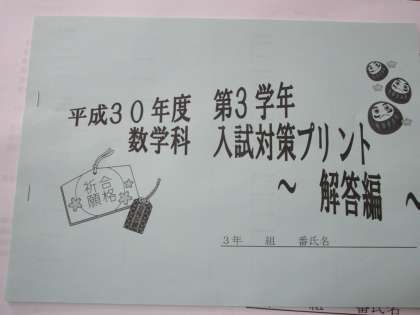 平成30年度 第3学年
数学科 入試対策プリント
~ 解答編 ~
祈合
願格
3年 組 番氏名
組 番氏名